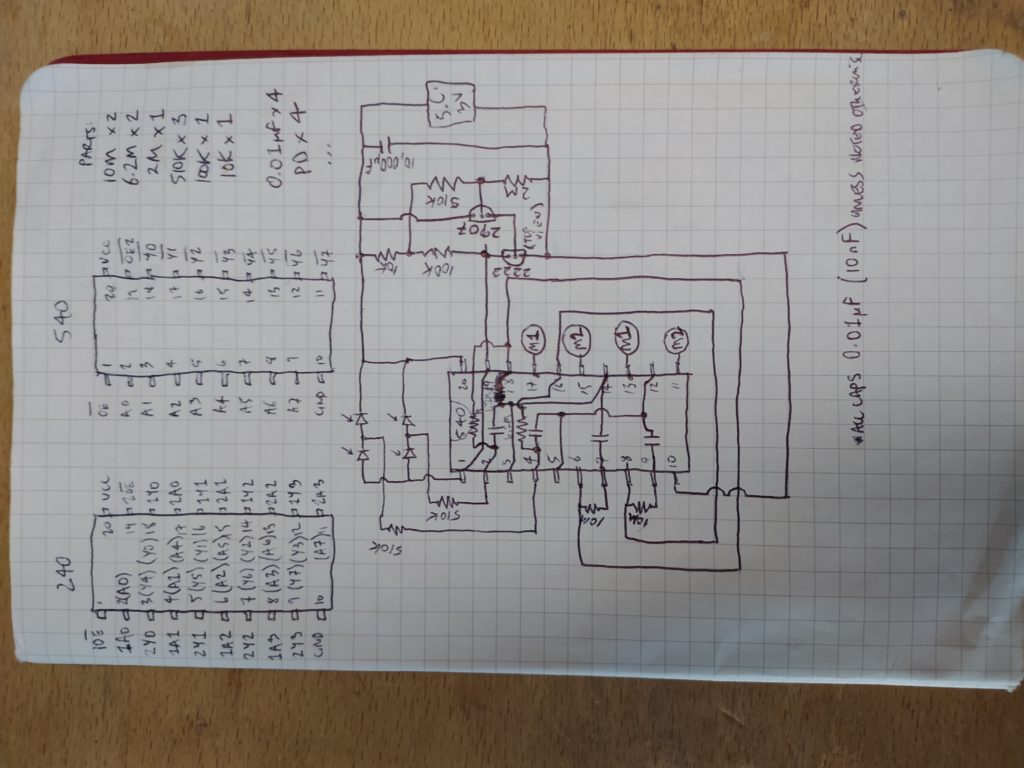 240
1OE
1A0
2Y0
1A1
2Y1
1A2
2Y2
1A3
2Y3
GND
1
2 (A0)
3 (Y4) (Y0) 18
4 (A1) (A4) 17
5 (Y5) (Y1) 16
6 (A2) (A5) 15
7 (Y6) (Y2) 14
8 (A3) (A6) 13
9 (Y7) (Y3) 12
10 (A7) 11
20
19
VCC
2OE
1Y0
2A0
1Y1
2A1
1Y2
2A2
1Y3
2A3
540
OE
A0
A1
A2
A3
A4
A5
A6
A7
GND
1 20
2 19
3 18
4 17
5 16
6 15
7 14
8 13
9 12
10 11
VCC
OE2
Y0
Y1
Y2
Y3
Y4
Y5
Y6
Y7
PARTS:
10M x 2
6.2M x 2
2M x 1
510K x 3
100K x 1
10K x 1
0.01µF x 4
PD x 4
...
S.C.
5V
510K
2907
100K
2222
(TOP VIEW)
540
510K
510K
1 20
2 19
3 18
4 17
5 16
6 15
7 14
8 13
9 12
10 11
M1
M2
M1
M2
10M
*ALL CAPS 0.01µF (10nF) UNLESS NOTED OTHERWISE